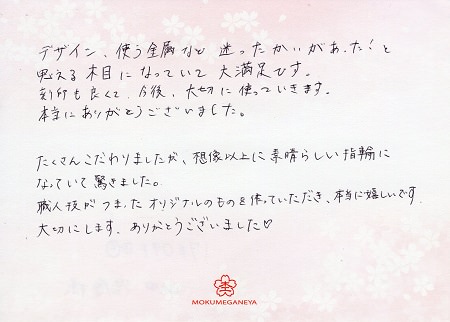 デザイン、使う金属など 迷ったかいがあった!と
思える木目になっていて 大満足です。
刻印も良くて、今後、大切に使っていきます。
本当にありがとうございました。
たくさんこだわりましたが、想像以上に素晴らしい指輪に
なっていて驚きました。
職人技がつまったオリジナルのものを作っていただき、本当に嬉しいです
大切にします。ありがとうございました♡
杢
MOKUMEGANEYA